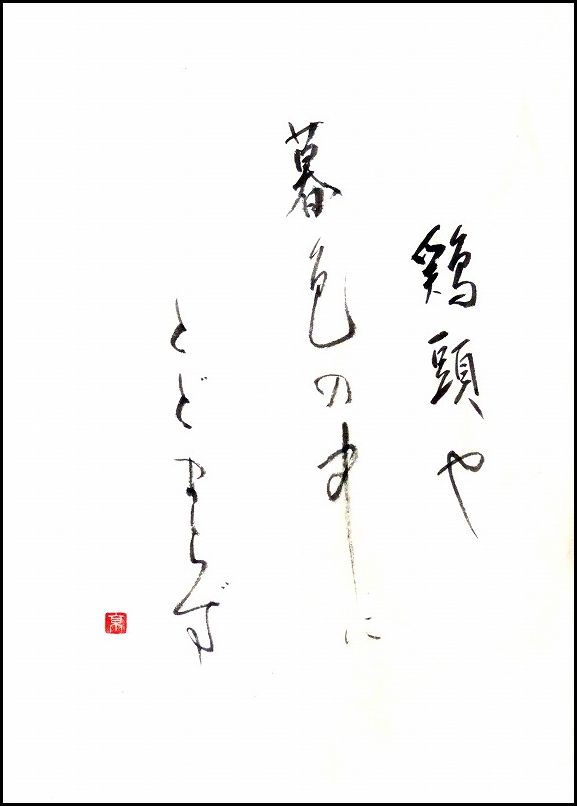 鶏頭や
暮色の中に
とどまらず